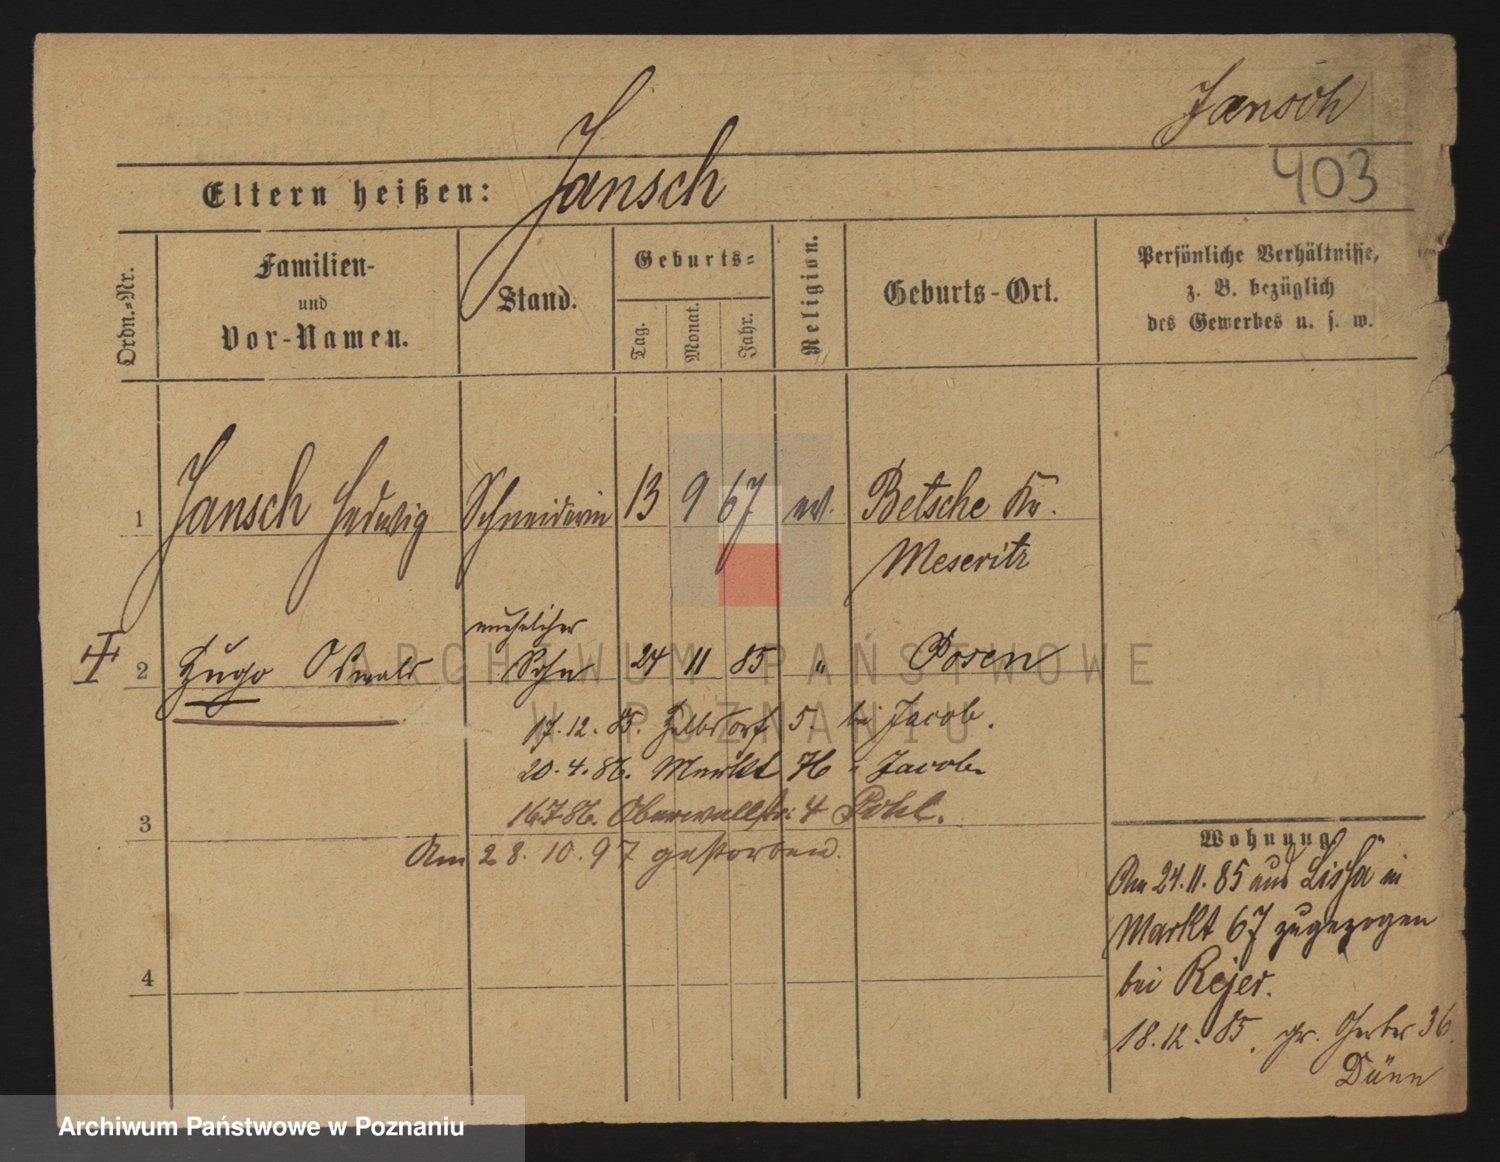 Jansch
403
Eltern heißen: Jansch
Ordn.-Nr.
Familien-
und
Vor-Namen.
Stand.
Geburts-
Tag.
Monat.
Jahr.
Religion.
Geburts-Ort.
Persönliche Verhältnisse,
z. B. bezüglich
des Gewerbes u. s. w.
1 Jansch Hedwig Schneiderin 13 9 67 ev. Betsche Kr.
Meseritz
unehelicher
2 Hugo Oswald Sohn 24 11 85 " Posen
17.12.85. Halbdorf 5. bei Jacob.
20.4.86. Markt 76 Jacob
3 16.7.86. Oberwallstr. 4 Pohl.
Am 28.10.97 gestorben.
4
Wohnung.
Am 24.11.85 aus Lissa in
Markt 67 zugezogen
bei Rejer.
18.12.85. gr. Gerber 36
Dünn
ARCHIWUM PAŃSTWOWE
W POZNANIU
Archiwum Państwowe w Poznaniu